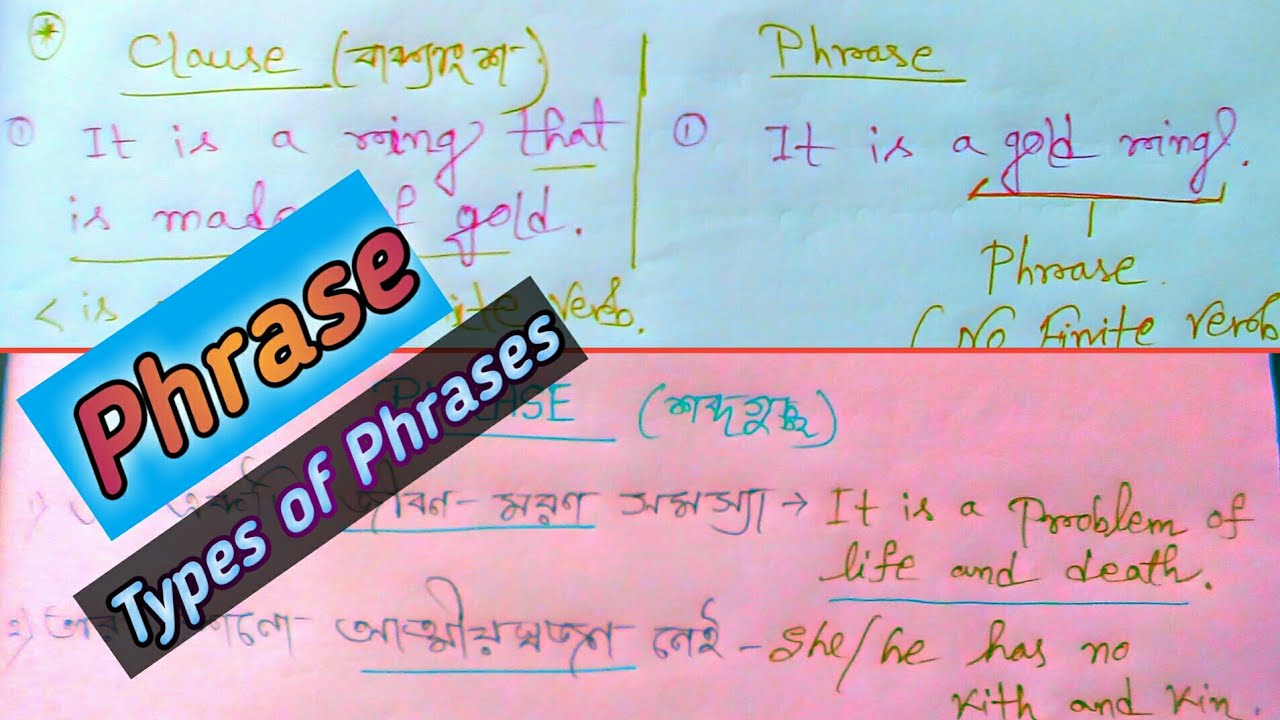 * Clause (বাক্যাংশ) 
① It is a ring that
is made of gold.
< is finite verb.
Phrase
① It is a gold ring.
Phrase.
(No Finite verb
Phrase
Types of Phrases
PHRASE (শব্দগুচ্ছ)
১) জীবণ-মরণ সমস্যা → It is a Problem of
life and death.
২) আত্মীয়স্বজণ নেই - She/he has no
Kith and Kin.